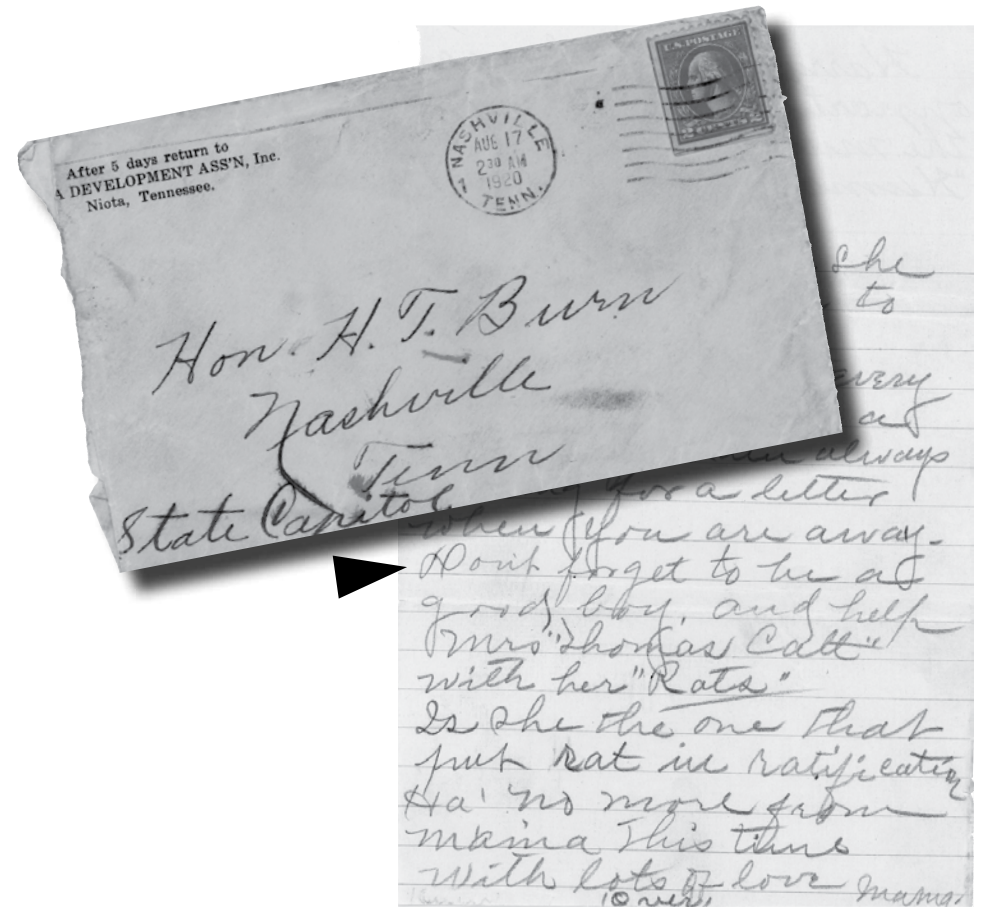 After 5 days return to
A DEVELOPMENT ASS'N, Inc.
Niota, Tennessee.
U.S. POSTAGE
NASHVILLE
AUG 17
2 30 AM
1920
TENN.
1
Hon. H. T. Burn
Nashville
Tenn
State Capitol
she
to
every
a
always
for a letter
when you are away.
Don't forget to be a
good boy, and help
Mrs "Thomas Catt"
with her "Rats"
Is she the one that
put rat in ratification
Ha! No more from
mama this time
With lots of love Mama.
(Over)